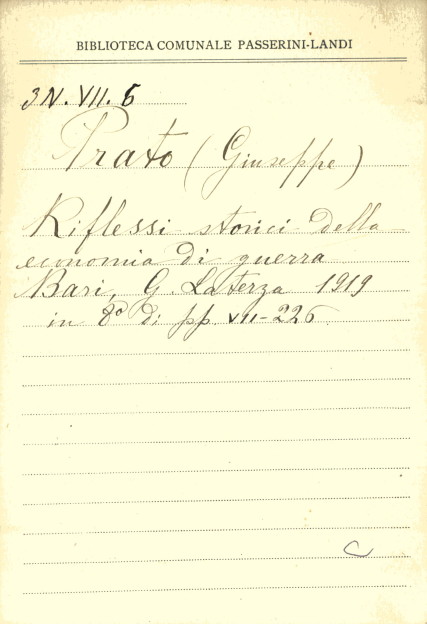 BIBLIOTECA COMUNALE PASSERINI-LANDI
3N. VII. 6
Prato (Giuseppe)
Riflessi storici della
economia di guerra
Bari, G. Laterza 1919
in 8º di pp. VII-226
C